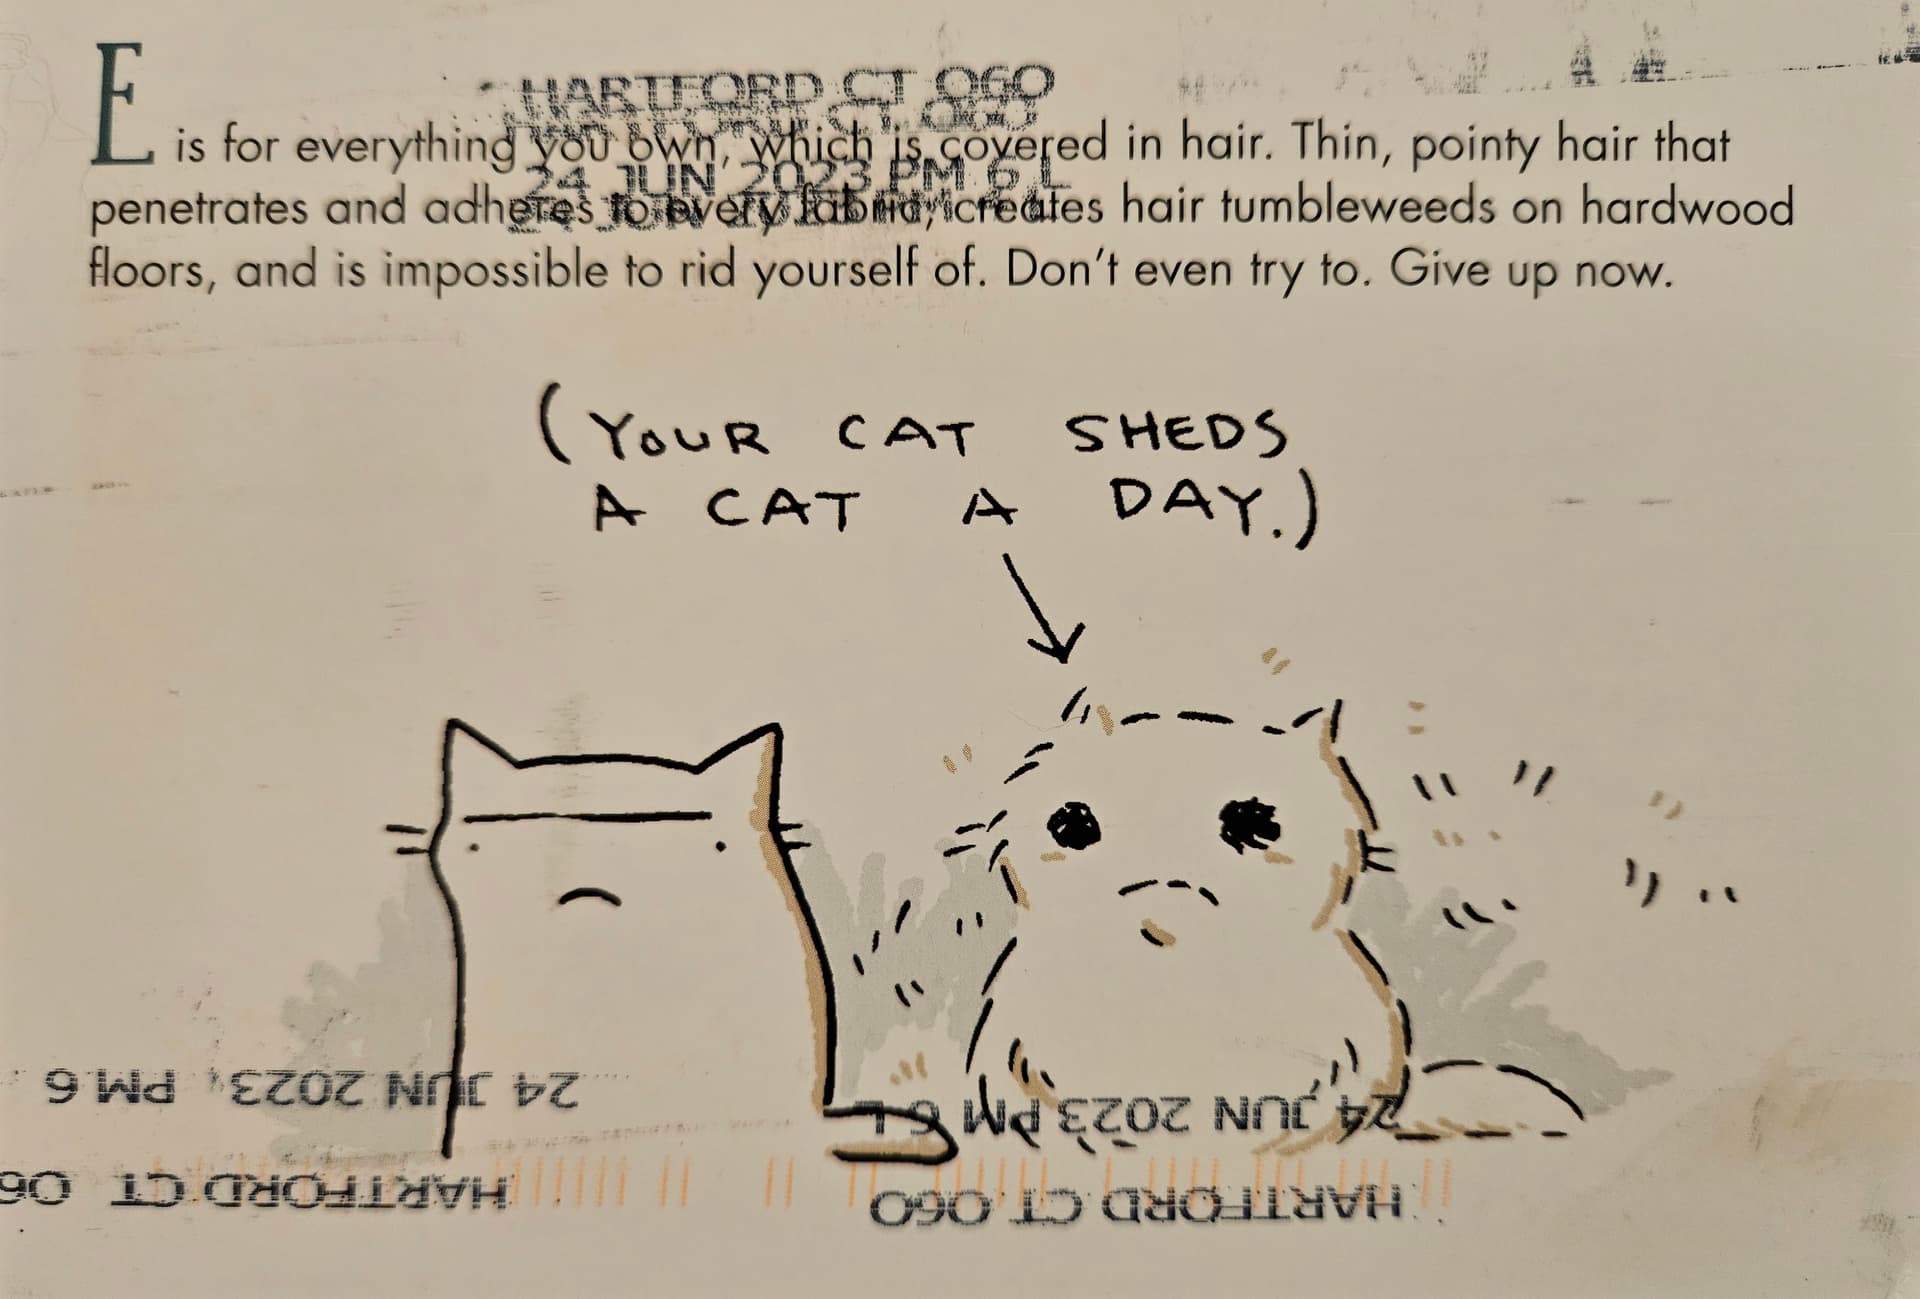 HARTFORD CT 060
E is for everything you own, which is covered in hair. Thin, pointy hair that
24 JUN 2023 PM 6 L
penetrates and adheres to every fabric, creates hair tumbleweeds on hardwood
floors, and is impossible to rid yourself of. Don't even try to. Give up now.
(YOUR CAT SHEDS
A CAT A DAY.)
24 JUN 2023 PM 6
24 JUN 2023 PM 6 L
HARTFORD CT 06
HARTFORD CT 060